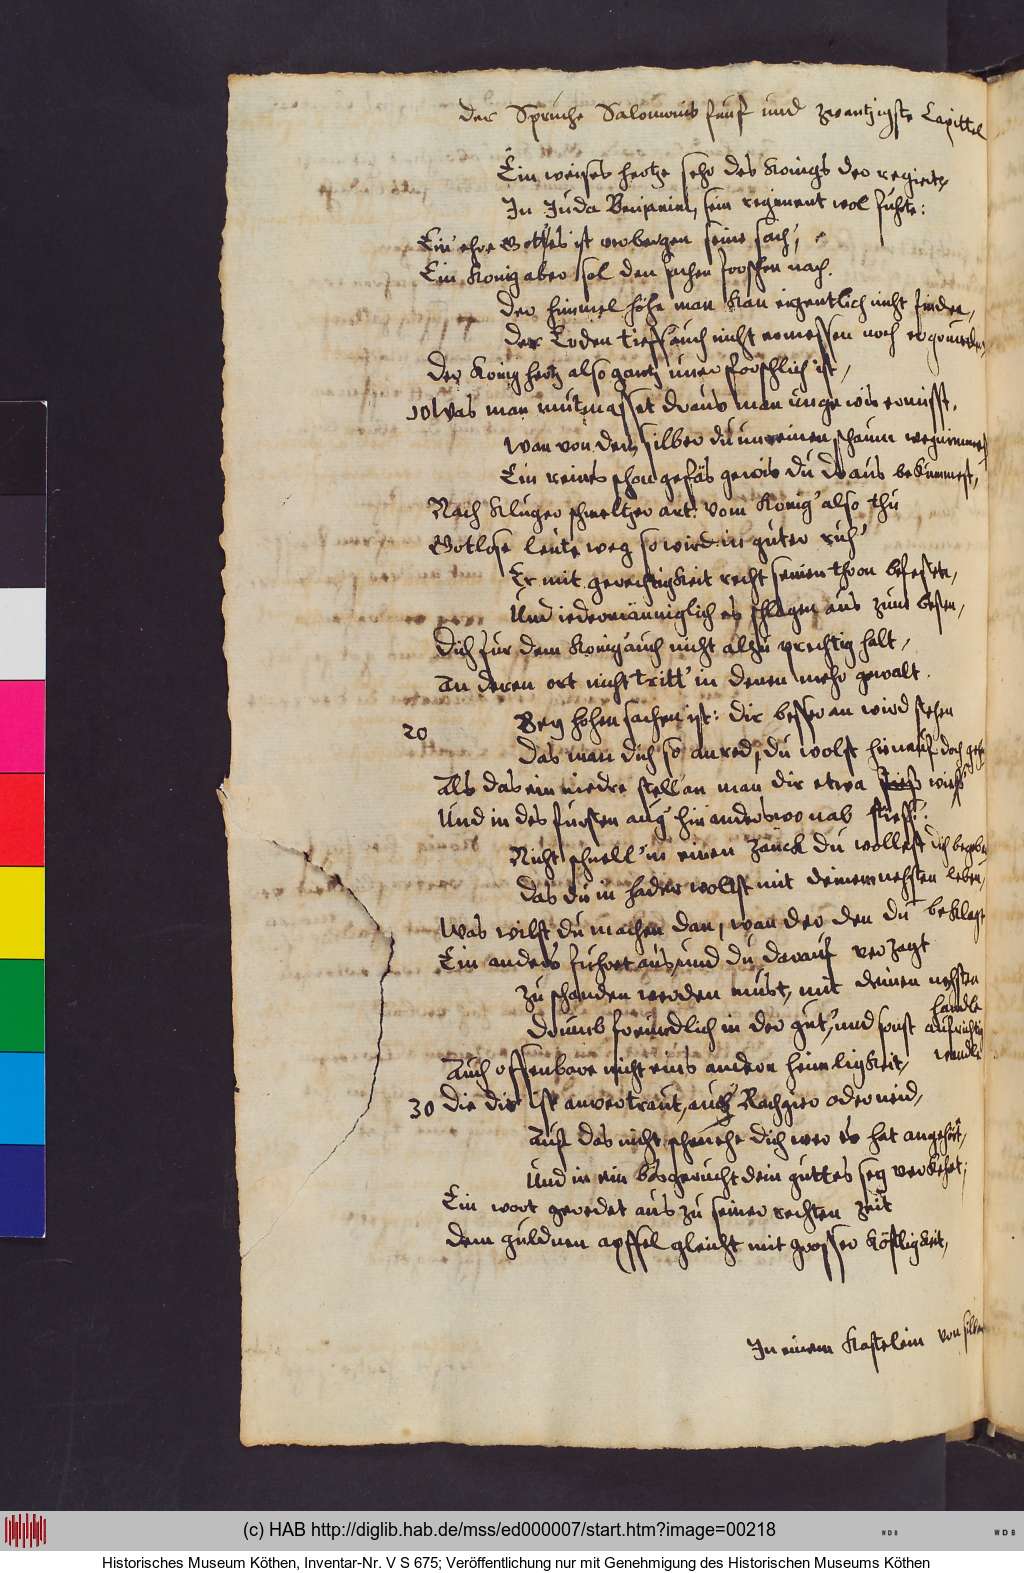 Der Spruche Salomons funf und zwantzigste Capittel
Ein weises hertze sehr des Konigs der regirte,
In Juda Benjamin, sein regiment wol fuhrte:
Ein' ehre Gottes ist verbergen seine sach',
Ein Konig aber sol den sachen forschen nach.
Der himmel höhe man kan eigentlich nicht finden,
Der Erden tieff' auch nicht ermessen noch ergrunden,
Der König hertz also gantz unerforschlich ist,
10 Was man mutmasset draus man ungewis ermisst.
Wan von dem silber du unreinen schaum wegnimmest
Ein reines schon gefäs gewis du draus bekummest,
Nach kluger schmeltzer art: vom König' also thu
Gotlose leute weg so wird in guter ruh'
Er mit gerechtigkeit recht seinen thron befesten,
Und iedermänniglich es schlagen aus zum besten,
Dich fur dem König auch nicht alzu prechtig halt,
An deren ort nicht tritt' in denen mehr gewalt.
20 Bey hohen sachen ist: dir besser an wird stehen
Das man dich so anred, du wolst hienauf doch gehn
Als das ein niedre stell' an man dir etwa wieß'
Und in des fursten aug' hin anderswo nab stieß'.
Nicht schnell' in einen zanck du wollest dich begeben
Das du in hader wollst mit deinem nehsten leben,
Was wilst du machen dan, wan der den du beklagt
Ein anders fuhret aus, und du darauf verzagt
Zu schanden werden must, mit deinen nehsten handle
Drumb freundlich in der gut', und sonst aufrichtig wandle
Auch offenbare nicht eins andern heimligkeit,
30 Die dir ist anvertraut, aus Rachgier oder neid,
Auf das nicht scheuche dich wer es hat angehört,
Und in ein bös gerucht dein guttes sey verkehrt;
Ein wort geredet aus zu seiner rechten zeit
Dem guldnen apffel gleicht mit grosser köstligkeit,
In einem Kästelein von silber
(c) HAB http://diglib.hab.de/mss/ed000007/start.htm?image=00218
WDB
WDB
Historisches Museum Köthen, Inventar-Nr. V S 675; Veröffentlichung nur mit Genehmigung des Historischen Museums Köthen